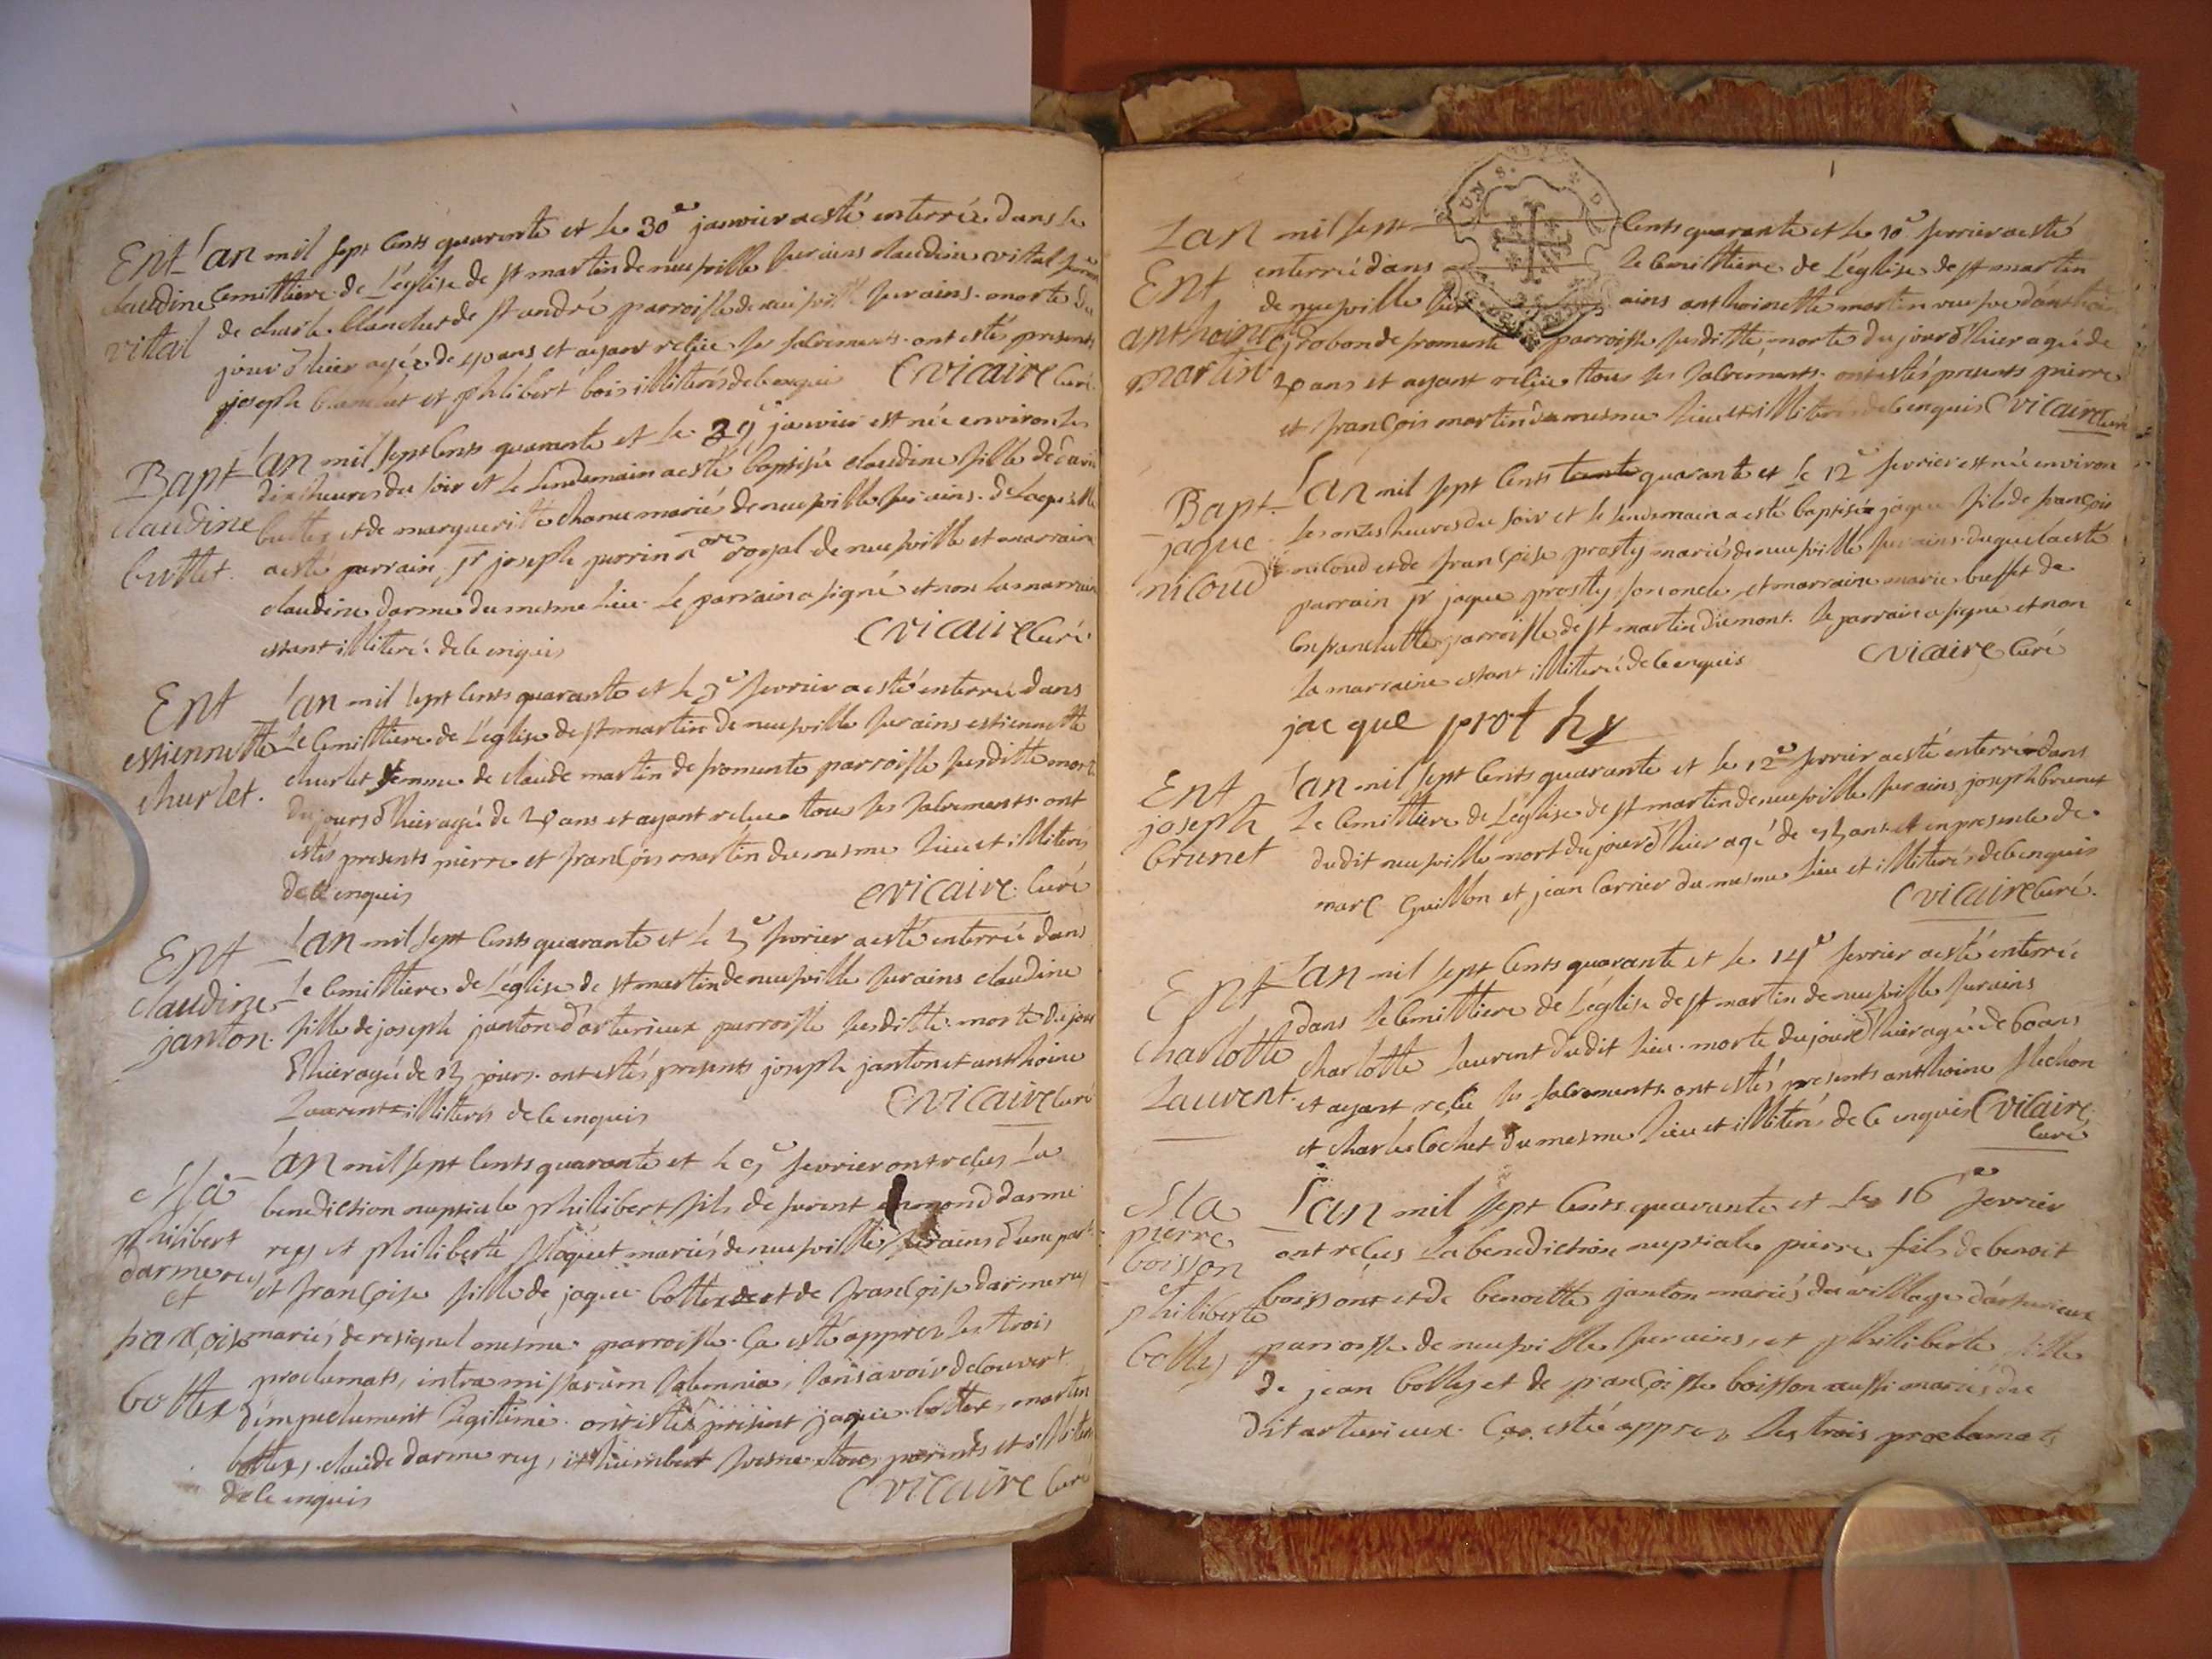 Ent
claudine
vitail
L'an mil sept cents quarante et le 30e janvier a esté enterrée dans le
cemittiere de L'église de st martin de neufville sur ains claudine vital femme
de charle blanchet de st andré parroisse de neufville sur ains. morte du
jour d'hier agée de 40 ans et ayant reçue les sacrements. ont estés presents
joseph blanchet et philibert bois illiterés de ce enquis C vicaire curé
Bapt
claudine
buttet.
L'an mil sept cents quarante et le 29e janvier est née environ les
dix heures du soir et le lendemain a esté baptisée claudine fille de
buttet et de marguerite mariés de neufville sur ains. de laquelle
a esté parrain sr joseph perrin nore royal de neufville et marraine
claudine darme du mesme lieu. Le parrain a signé et non la marraine
estant illiterée de ce enquis C vicaire curé
Ent
estiennette
churlet.
L'an mil sept cents quarante et le 3e fevrier a esté enterrée dans
Le cemittiere de L'église de st martin de neufville sur ains estiennette
churlet femme de claude martin de fromente parroisse susditte morte
du jours d'hier agée de ans et ayant reçue tous les sacrements. ont
estés presents pierre et françois martin du mesme lieu et illiterés
de ce enquis C vicaire. curé
Ent
claudine
janton.
L'an mil sept cents quarante et le 5e fevrier a esté enterrée dans
le cemittiere de L'église de st martin de neufville sur ains claudine
fille de joseph janton d'arturieux parroisse susditte. morte du jour
d'hier agée de 15 jours. ont estés presents joseph janton et anthoine
Laurent illiterés de ce enquis C vicaire curé
Ma
philibert
darmerey
et
françoise
bottex
L'an mil sept cents quarante et le 9e fevrier ont reçus La
benediction nuptiale philibert fils de furent darme
rey et philiberte mariés de neufville sur ains d'une part
et françoise fille de jaque bottex et de françoise darmerey
mariés de resignel mesme parroisse. ça esté appres les trois
proclamats, intra missarum solemnia, sans avoir decouvert
d'impechement legitime. ont estés présent jaque bottex, martin
bottex, claude darmerey, et humbert tous parents et illiterés
de ce enquis C vicaire curé
1
Ent
anthoinette
martin
L'an mil sept cents quarante et le 10e fevrier a esté
enterrée dans le cemittiere de L'église de st martin
de neufville sur ains anthoinette martin veufve d'anthoine
de fromente parroisse susditte, morte du jour d'hier agée de
ans et ayant reçue tous les sacrements. ont estés presents pierre
et françois martin du mesme lieu et illiterés de ce enquis C vicaire curé
Bapt.
jaque
nicoud
L'an mil sept cents quarante et le 12e fevrier est né environ
les onze heures du soir et le lendemain a esté baptisé jaque fils de françois
nicoud et de françoise prosty mariés de neufville sur ains. duquel a esté
parrain sr jaque prosty son oncle, et marraine marie buffet de
parroisse de st martin du mont. le parrain a signé et non
la marraine estant illiterée de ce enquis C vicaire curé
jacque prothy
Ent
joseph
brunet
L'an mil sept cents quarante et le 12e fevrier a esté enterré dans
Le cemittiere de L'église de st martin de neufville sur ains joseph brunet
dudit neufville mort du jour d'hier agé de ans et en presence de
marc Guillon et jean carrier du mesme lieu et illiterés de ce enquis
C vicaire curé.
Ent
charlotte
Laurent.
L'an mil sept cents quarante et le 14e fevrier a esté enterrée
dans le cemittiere de L'église de st martin de neufville sur ains
charlotte laurent dudit lieu. morte du jour d'hier agée de 60 ans
et ayant reçue les sacrements. ont estés présents anthoine
et charles cochet du mesme lieu et illiterés de ce enquis C vicaire
curé
Ma
pierre
boisson
et
philiberte
bolley
L'an mil sept cents quarante et le 16e fevrier
ont reçus la benediction nuptiale pierre fils de benoit
boisson et de benoitte janton mariés du village d'arturieux
parroisse de neufville sur ains, et philiberte fille
de jean bolley et de françoisse boisson aussi mariés du
dit arturieux. ça esté appres les trois proclamats